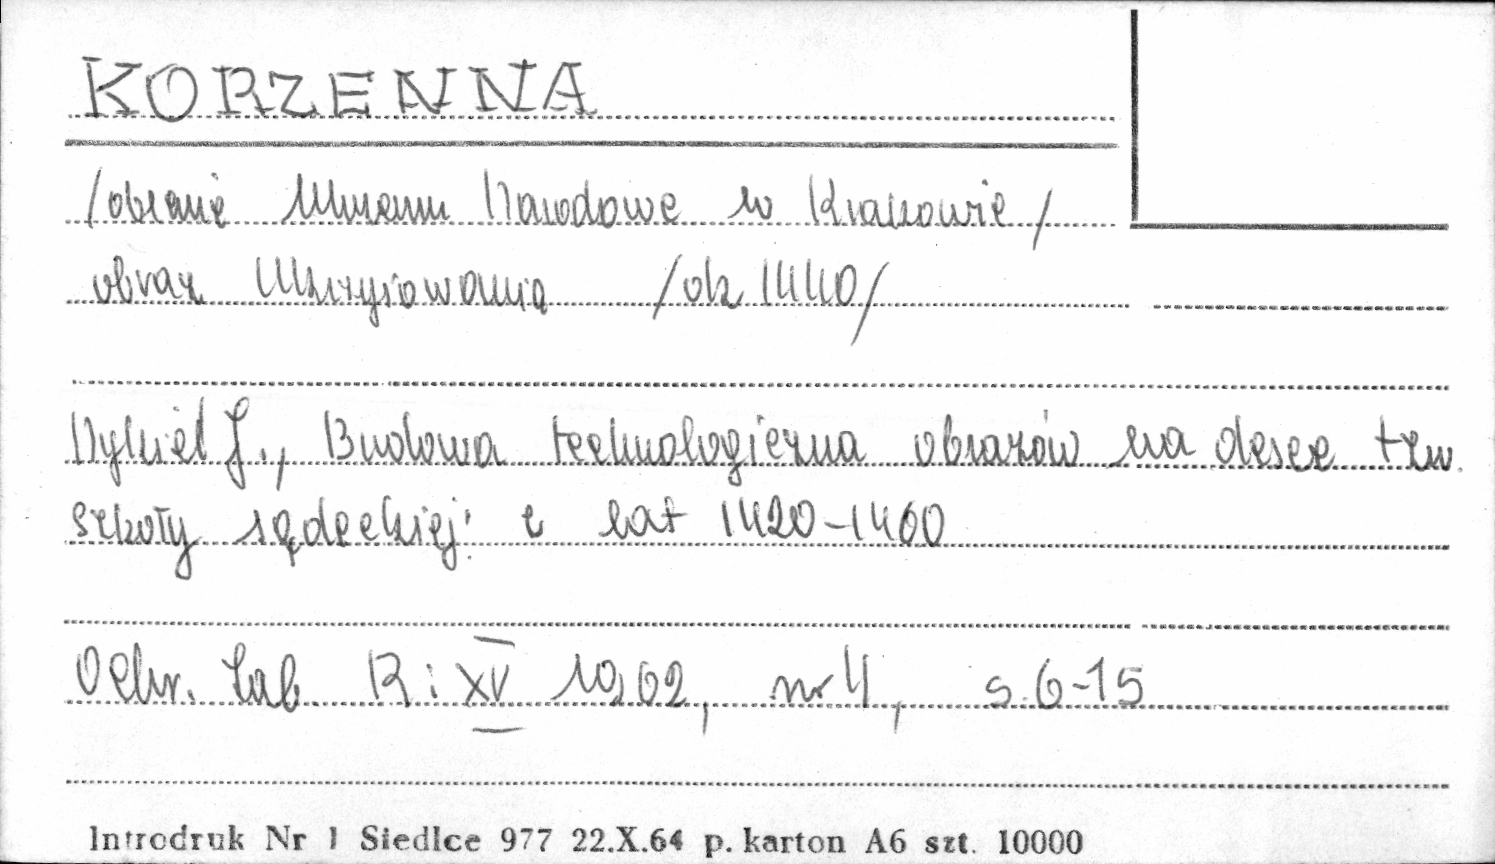 KORZENNA
/obecnie Muzeum Narodowe w Krakowie/
obraz Ukrzyżowania /ok 1440/
Nykiel J., Budowa technologiczna obrazów na desce tzw.
szkoły sądeckiej: z lat 1420-1460
Ochr. Zab. R: XV 1962, nr 4, s. 6-15
Introdruk Nr 1 Siedlce 977 22.X.64 p. karton A6 szt. 10000